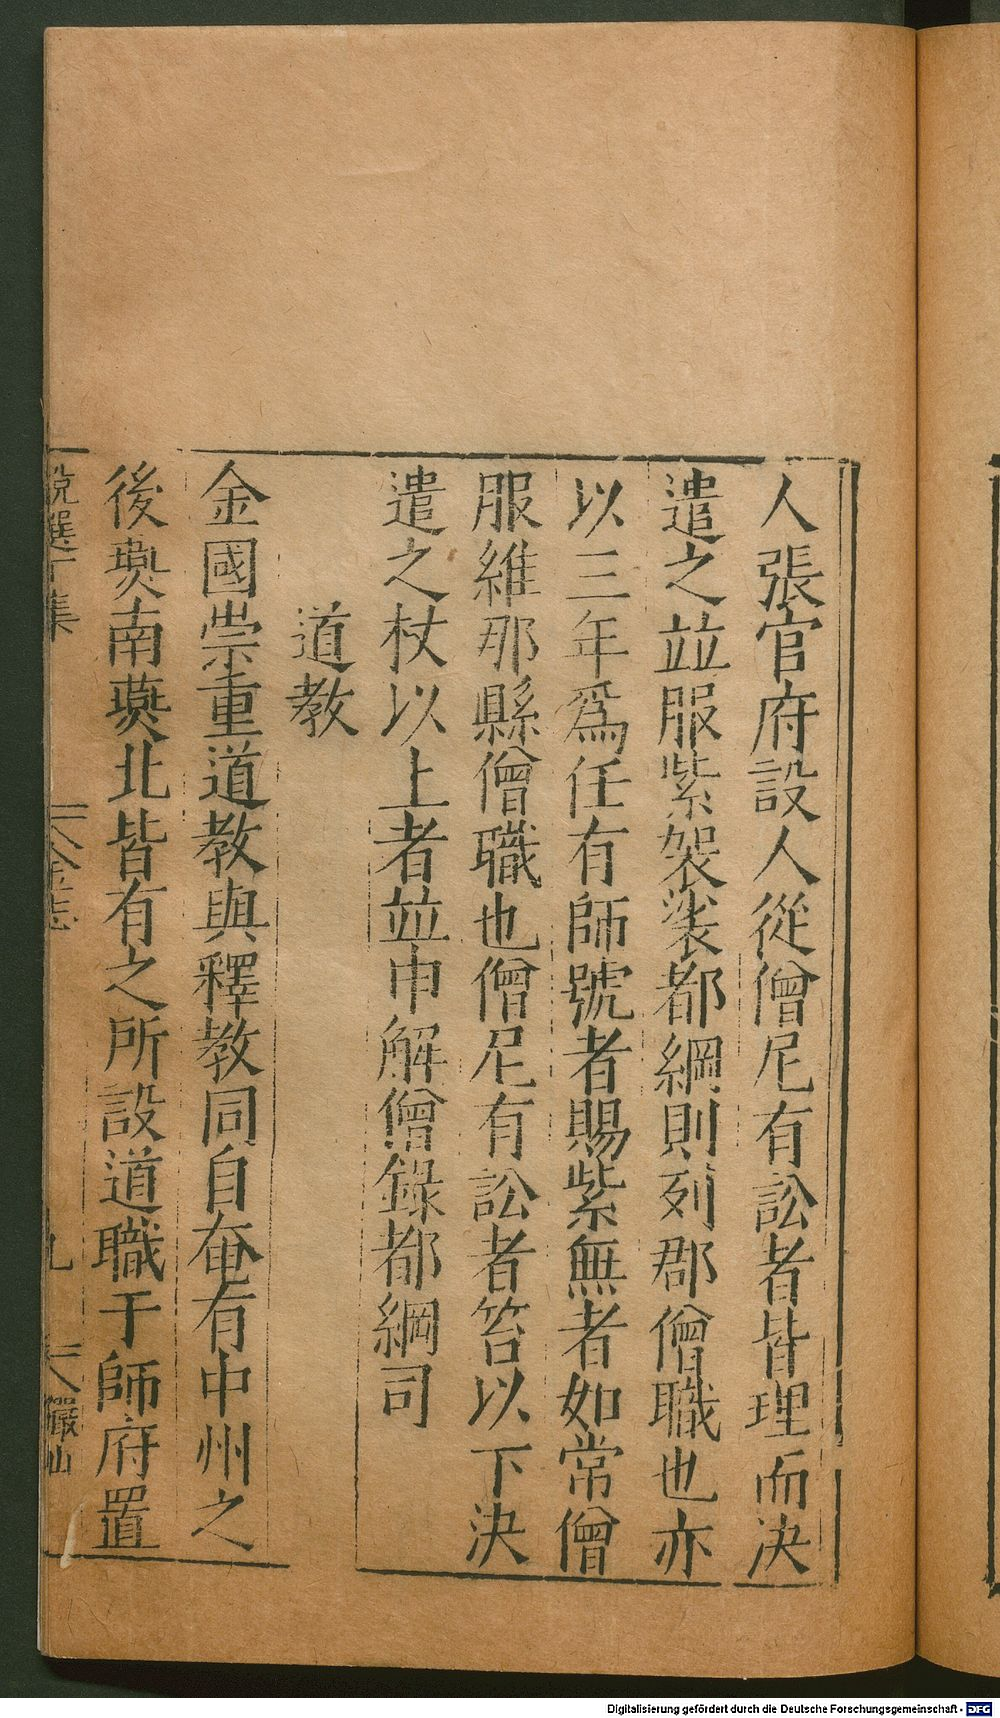 人張官府設人從僧尼有訟者皆理而决
遣之並服紫袈裟都綱則列郡僧職也亦
以三年爲任有師號者賜紫無者如常僧
服維那縣僧職也僧尼有訟者笞以下決
遣之杖以上者並申解僧錄都綱司
道教
金國崇重道教與釋教同自奄有中州之
後燕南燕北皆有之所設道職于師府置
說選丁集
金志
九
儼山
Digitalisierung gefördert durch die Deutsche Forschungsgemeinschaft - DFG